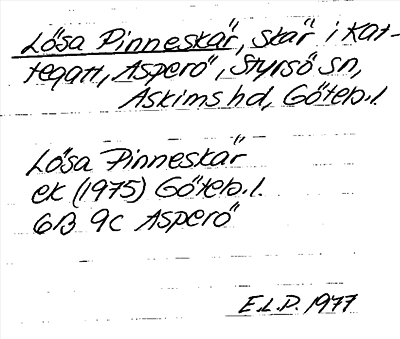 Lösa Pinneskär, skär i Kat-
tegatt, Asperö, Styrsö sn,
Askims hd, Göteb. l.
Lösa Pinneskär
ek (1975) Göteb. l.
6B 9c Asperö
E.L.P. 1977